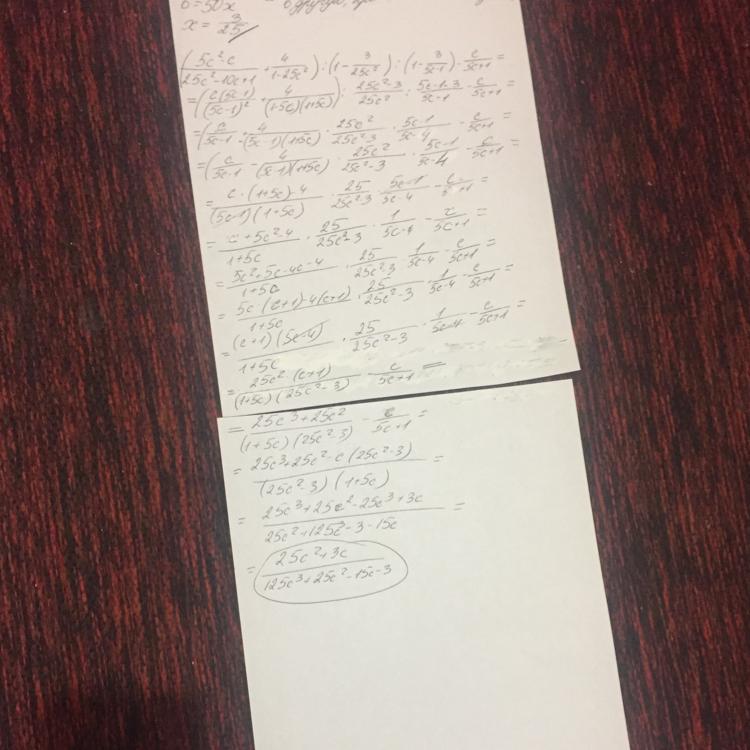 6=50x
x= 3/25
(5c²-c/25c²-10c+1 + 4/1-25c²) : (1- 3/25c²) : (1- 3/5c-1) - c/5c+1 =
=(c(5c-1)/(5c-1)² + 4/(1-5c)(1+5c)) : 25c²-3/25c² : 5c-1-3/5c-1 - c/5c+1 =
=(c/5c-1 + 4/-(5c-1)(1+5c)) · 25c²/25c²-3 · 5c-1/5c-4 - c/5c+1 =
=(c/5c-1 - 4/(5c-1)(1+5c)) · 25c²/25c²-3 · 5c-1/5c-4 - c/5c+1 =
= c·(1+5c)-4/(5c-1)(1+5c) · 25/25c²-3 · 5c-1/5c-4 - c/5c+1 =
= c+5c²-4/1+5c · 25/25c²-3 · 1/5c-4 - c/5c+1 =
= 5c²+5c-4c-4/1+5c · 25/25c²-3 · 1/5c-4 - c/5c+1 =
= 5c·(c+1)-4(c+1)/1+5c · 25/25c²-3 · 1/5c-4 - c/5c+1 =
= (c+1)(5c-4)/1+5c · 25/25c²-3 · 1/5c-4 - c/5c+1 =
= 25c²·(c+1)/(1+5c)(25c²-3) - c/5c+1 =
= 25c³+25c²/(1+5c)(25c²-3) - c/5c+1 =
= 25c³+25c²-c(25c²-3)/(25c²-3)(1+5c) =
= 25c³+25c²-25c³+3c/25c²+125c³-3-15c =
= 25c²+3c/125c³+25c²-15c-3